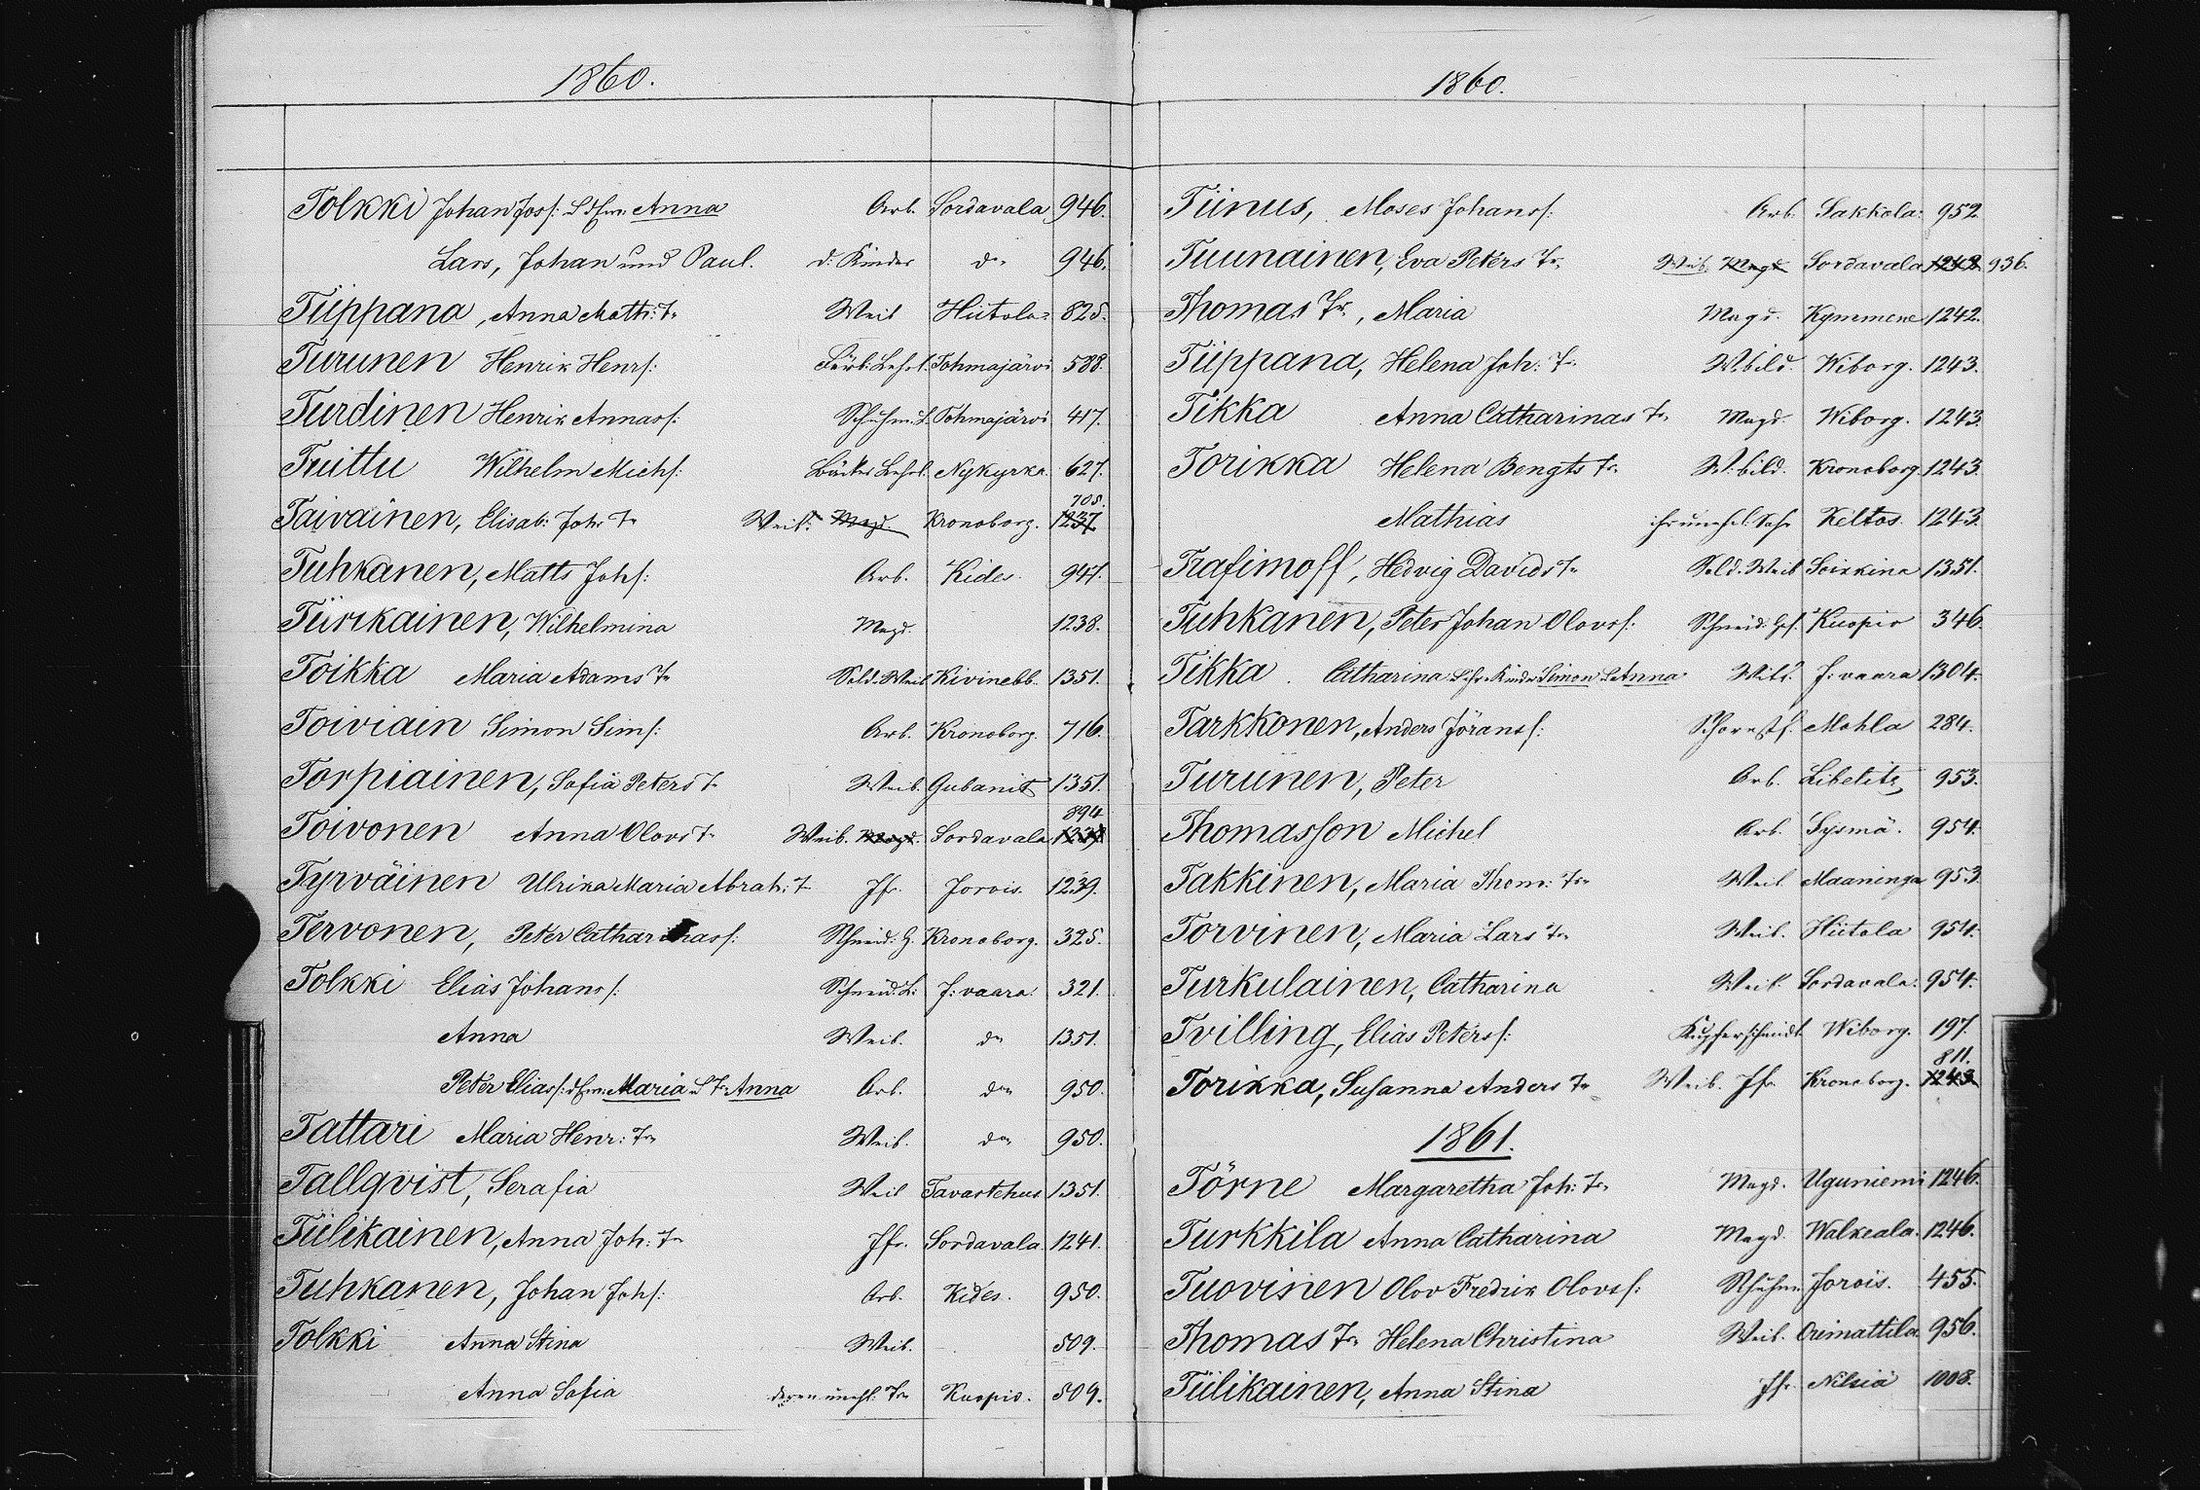 1860.
Tolkki Johan Joss: & d Frau Anna Arb. Sordavala 946.
Lars, Johan und Paul. d. Kinder do 946.
Tiippana, Anna Matth: Tr Weib Hiitola 825.
Turunen Henrik Henrs: Färb: Lehrl. Tohmajärvi 588.
Turdinen Henrik Annass: Schuhm: L. Tohmajärvi 417.
Tuittu Wilhelm Michs: Bäcker Lehrl. Nykyrka. 627.
705.
Taivainen, Elisab: Joh: Tr Weib. Magd. Kronoborg. 1237.
Tuhkanen, Matts Johs: Arb. Kides 947.
Türkkainen, Wilhelmina Magd. 1238.
Toikka Maria Adams Tr Sold. Weib Kivinebb. 1351.
Toiviain Simon Sims: Arb. Kronoborg. 716.
Torpiainen, Sofia Peters Tr Weib. Gubanits 1351.
894
Toivonen Anna Olovs Tr Weib. Magd. Sordavala 1238
Tyrväinen Ulrika Maria Abrah: Tr Jfr. Jorois. 1239.
Tervonen, Peter Catharinass: Schneid: G. Kronoborg. 325.
Tolkki Elias Johans: Schneid: L: J: vaara: 321.
Anna Weib. do 1351.
Peter Eliass: d Frau Maria u Tr Anna Arb. do 950.
Tattari Maria Henr: Tr Weib. do 950.
Tallqvist, Serafia Weib Tavastehus 1351.
Tiilikainen, Anna Joh: Tr Jfr. Sordavala 1241.
Tuhkanen, Johan Johs: Arb. Kides. 950.
Tolkki Anna Stina Weib. 509.
Anna Sofia deren unehl: Tr Kuopio. 509.
1860.
Tiinus, Moses Johanss: Arb. Sakkola: 952.
Tuunainen, Eva Peters Tr. Weib. Magd Sordavala 1242. 936.
Thomas Tr., Maria Magd. Kymmene 1242.
Tiippana, Helena Joh: Tr. Wbild. Wiborg. 1243.
Tikka Anna Catharinas Tr Magd. Wiborg. 1243.
Torikka Helena Bengts Tr. Wbild. Kronoborg. 1243.
Mathias ihr unehel. Sohn Keltos. 1243.
Trafimoff, Hedvig Davids Tr Sold. Weib Soikkina 1351.
Tuhkanen, Peter Johan Olovss: Schneid: Ges. Kuopio 346.
Tikka. Catharina & ihre Kinder Simon & Anna J: vaara 1304.
Tarkkonen, Anders Jöranss: Schornstf. Mohla 284.
Turunen, Peter Arb. Libelits 953.
Thomasson Michel Arb. Sysmä. 954.
Takkinen, Maria Thom: Tr Weib Maaninga 953.
Torvinen, Maria Lars Tr Weib. Hiitola 954.
Turkulainen, Catharina Weib. Sordavala: 954.
Tvilling, Elias Peterss: Kupferschmidt Wiborg. 197
811.
Torikka, Susanna Anders Tr Weib. Jfr Kronoborg. 1243
1861.
Törne Margaretha Joh: Tr. Magd. Uguniemi 1246.
Turkkila Anna Catharina Magd. Walkeala. 1246.
Tuovinen Olov Fredrik Olovss: Schuhm. Jorois. 455.
Thomas Tr. Helena Christina Weib. Orimattila 956.
Tiilikainen, Anna Stina Jfr. Nilsiä 1008.